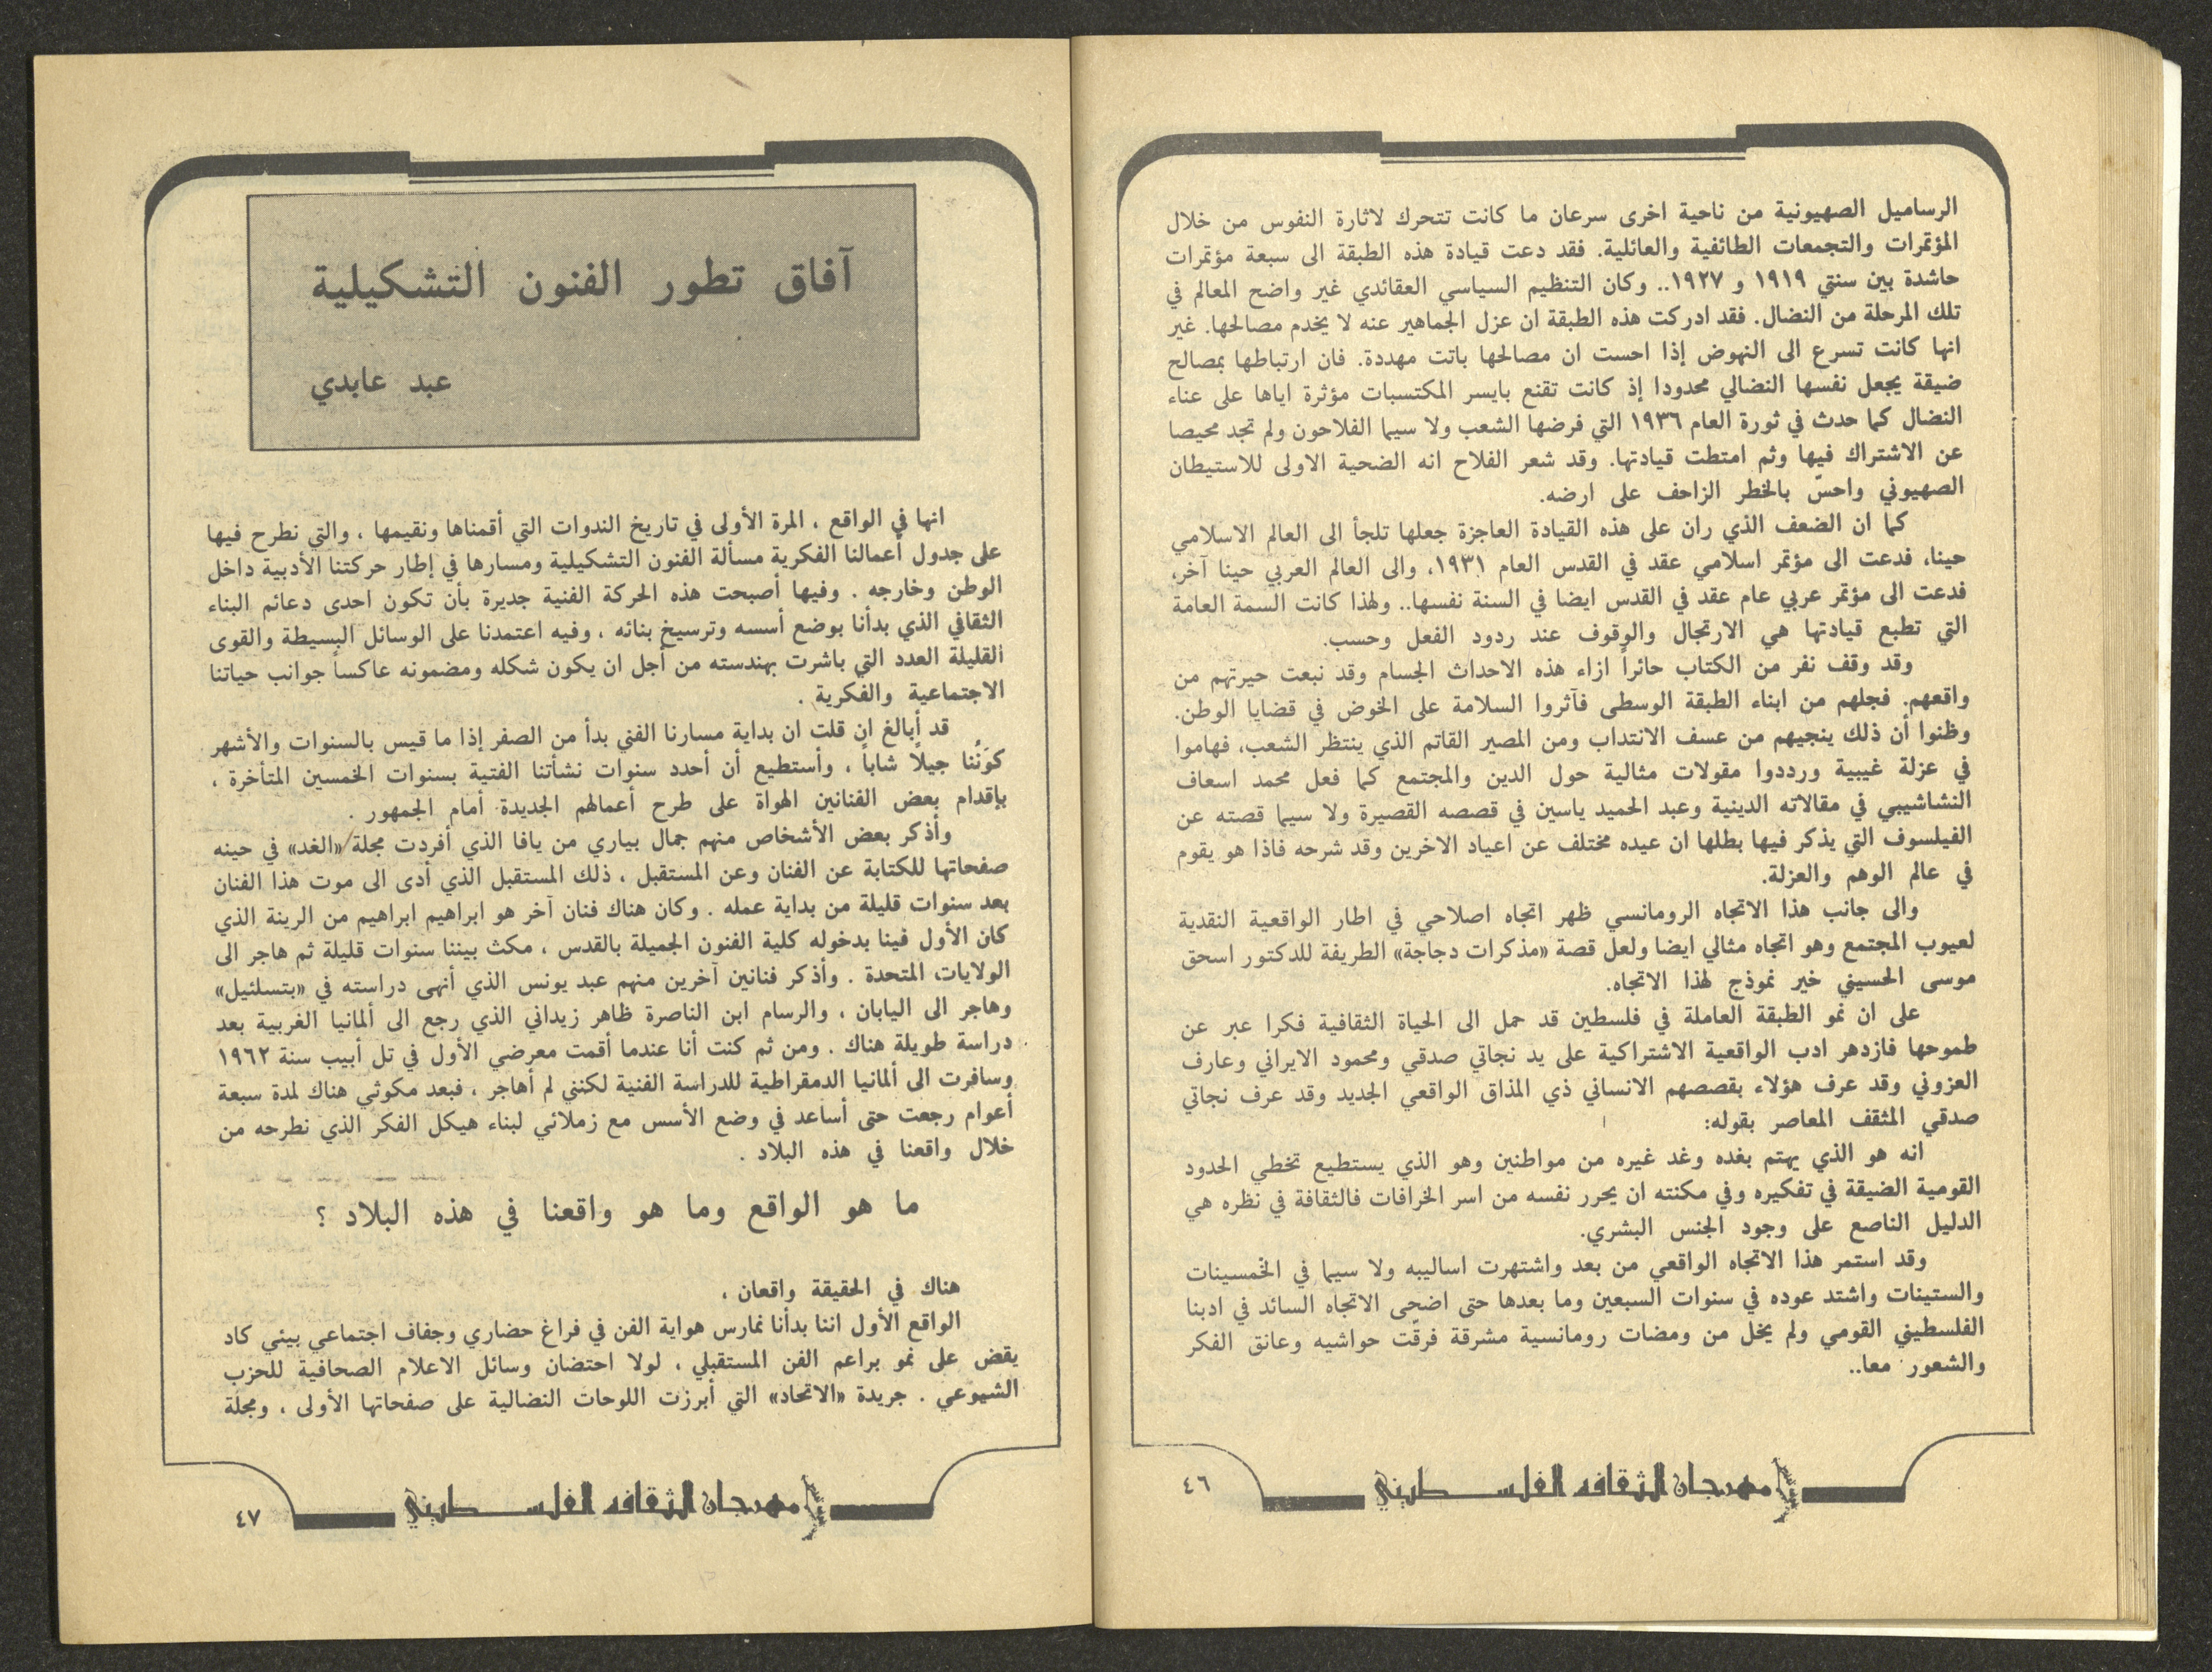 الرساميل الصهيونية من ناحية اخرى سرعان ما كانت تتحرك لاثارة النفوس من خلال
المؤتمرات والتجمعات الطائفية والعائلية. فقد دعت قيادة هذه الطبقة الى سبعة مؤتمرات
حاشدة بين سنتي ١٩١٩ و ١٩٢٧.. وكان التنظيم السياسي العقائدي غير واضح المعالم في
تلك المرحلة من النضال. فقد ادركت هذه الطبقة ان عزل الجماهير عنه لا يخدم مصالحها. غير
انها كانت تسرع الى النهوض إذا احست ان مصالحها باتت مهددة. فان ارتباطها بمصالح
ضيقة يجعل نفسها النضالي محدودا إذ كانت تقنع بايسر المكتسبات مؤثرة اياها على عناء
النضال كما حدث في ثورة العام ١٩٣٦ التي فرضها الشعب ولا سيما الفلاحون ولم تجد محيصا
عن الاشتراك فيها وثم امتطت قيادتها. وقد شعر الفلاح انه الضحية الاولى للاستيطان
الصهيوني واحسّ بالخطر الزاحف على ارضه.
كما ان الضعف الذي ران على هذه القيادة العاجزة جعلها تلجأ الى العالم الاسلامي
حينا، فدعت الى مؤتمر اسلامي عقد في القدس العام ١٩٣١، والى العالم العربي حينا آخر،
فدعت الى مؤتمر عربي عام عقد في القدس ايضا في السنة نفسها.. ولهذا كانت السمة العامة
التي تطبع قيادتها هي الارتجال والوقوف عند ردود الفعل وحسب.
وقد وقف نفر من الكتاب حائراً ازاء هذه الاحداث الجسام وقد نبعت حيرتهم من
واقعهم. فجلهم من ابناء الطبقة الوسطى فآثروا السلامة على الخوض في قضايا الوطن.
وظنوا أن ذلك ينجيهم من عسف الانتداب ومن المصير القاتم الذي ينتظر الشعب، فهاموا
في عزلة غيبية ورددوا مقولات مثالية حول الدين والمجتمع كما فعل محمد اسعاف
النشاشيبي في مقالاته الدينية وعبد الحميد ياسين في قصصه القصيرة ولا سيما قصته عن
الفيلسوف التي يذكر فيها بطلها ان عيده مختلف عن اعياد الاخرين وقد شرحه فاذا هو يقوم
في عالم الوهم والعزلة.
والى جانب هذا الاتجاه الرومانسي ظهر اتجاه اصلاحي في اطار الواقعية النقدية
لعيوب المجتمع وهو اتجاه مثالي ايضا ولعل قصة «مذكرات دجاجة» الطريفة للدكتور اسحق
موسى الحسيني خير نموذج لهذا الاتجاه.
على ان نمو الطبقة العاملة في فلسطين قد حمل الى الحياة الثقافية فكرا عبر عن
طموحها فازدهر ادب الواقعية الاشتراكية على يد نجاتي صدقي ومحمود الايراني وعارف
العزوني وقد عرف هؤلاء بقصصهم الانساني ذي المذاق الواقعي الجديد وقد عرف نجاتي
صدقي المثقف المعاصر بقوله:
انه هو الذي يهتم بغده وغد غيره من مواطنين وهو الذي يستطيع تخطي الحدود
القومية الضيقة في تفكيره وفي مكنته ان يحرر نفسه من اسر الخرافات فالثقافة في نظره هي
الدليل الناصع على وجود الجنس البشري.
وقد استمر هذا الاتجاه الواقعي من بعد واشتهرت اساليبه ولا سيما في الخمسينات
والستينات واشتد عوده في سنوات السبعين وما بعدها حتى اضحى الاتجاه السائد في ادبنا
الفلسطيني القومي ولم يخل من ومضات رومانسية مشرقة فرقّت حواشيه وعانق الفكر
والشعور معا..
مهرجان الثقافه الفلسطيني
٤٦
آفاق تطور الفنون التشكيلية
عبد عابدي
انها في الواقع ، المرة الأولى في تاريخ الندوات التي أقمناها ونقيمها ، والتي نطرح فيها
على جدول أعمالنا الفكرية مسألة الفنون التشكيلية ومسارها في إطار حركتنا الأدبية داخل
الوطن وخارجه . وفيها أصبحت هذه الحركة الفنية جديرة بأن تكون احدى دعائم البناء
الثقافي الذي بدأنا بوضع أسسه وترسيخ بنائه ، وفيه اعتمدنا على الوسائل البسيطة والقوى
القليلة العدد التي باشرت بهندسته من أجل ان يكون شكله ومضمونه عاكساً جوانب حياتنا
الاجتماعية والفكرية .
قد أبالغ ان قلت ان بداية مسارنا الفني بدأ من الصفر إذا ما قيس بالسنوات والأشهر
كوَنُنا جيلاً شاباً ، وأستطيع أن أحدد سنوات نشأتنا الفتية بسنوات الخمسين المتأخرة ،
بإقدام بعض الفنانين الهواة على طرح أعمالهم الجديدة أمام الجمهور .
وأذكر بعض الأشخاص منهم جمال بياري من يافا الذي أفردت مجلة «الغد» في حينه
صفحاتها للكتابة عن الفنان وعن المستقبل ، ذلك المستقبل الذي أدى الى موت هذا الفنان
بعد سنوات قليلة من بداية عمله . وكان هناك فنان آخر هو ابراهيم ابراهيم من الرينة الذي
كان الأول فينا بدخوله كلية الفنون الجميلة بالقدس ، مكث بيننا سنوات قليلة ثم هاجر الى
الولايات المتحدة . وأذكر فنانين آخرين منهم عبد يونس الذي أنهى دراسته في «بتسلئيل»
وهاجر الى اليابان ، والرسام ابن الناصرة ظاهر زيداني الذي رجع الى ألمانيا الغربية بعد
دراسة طويلة هناك . ومن ثم كنت أنا عندما أقمت معرضي الأول في تل أبيب سنة ١٩٦٢
وسافرت الى ألمانيا الدمقراطية للدراسة الفنية لكنني لم أهاجر ، فبعد مكوثي هناك لمدة سبعة
أعوام رجعت حتى أساعد في وضع الأسس مع زملائي لبناء هيكل الفكر الذي نطرحه من
خلال واقعنا في هذه البلاد .
ما هو الواقع وما هو واقعنا في هذه البلاد ؟
هناك في الحقيقة واقعان ،
الواقع الأول اننا بدأنا نمارس هواية الفن في فراغ حضاري وجفاف اجتماعي بيئي كاد
يقض على نمو براعم الفن المستقبلي ، لولا احتضان وسائل الاعلام الصحافية للحزب
الشيوعي . جريدة «الاتحاد» التي أبرزت اللوحات النضالية على صفحاتها الأولى ، ومجلة
مهرجان الثقافه الفلسطيني
٤٧